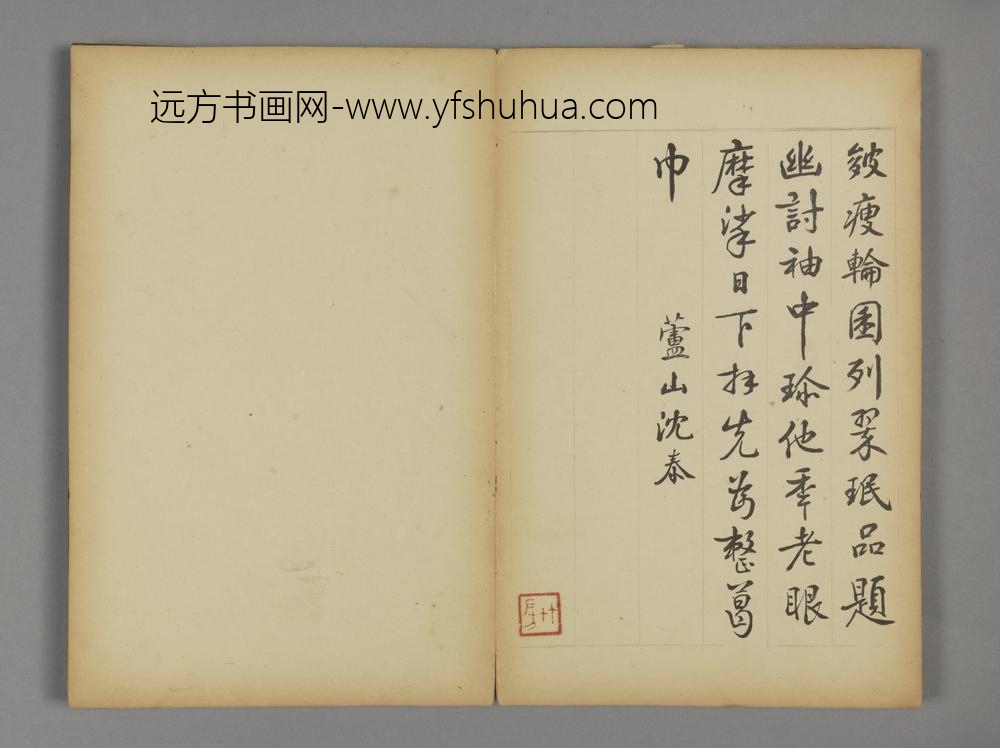 远方书画网-www.yfshuhua.com
皴瘦輪囷列翠珉品題
幽討袖中珍他季老眼
摩挲日下拜先為整葛
巾
蘆山沈泰
竹房